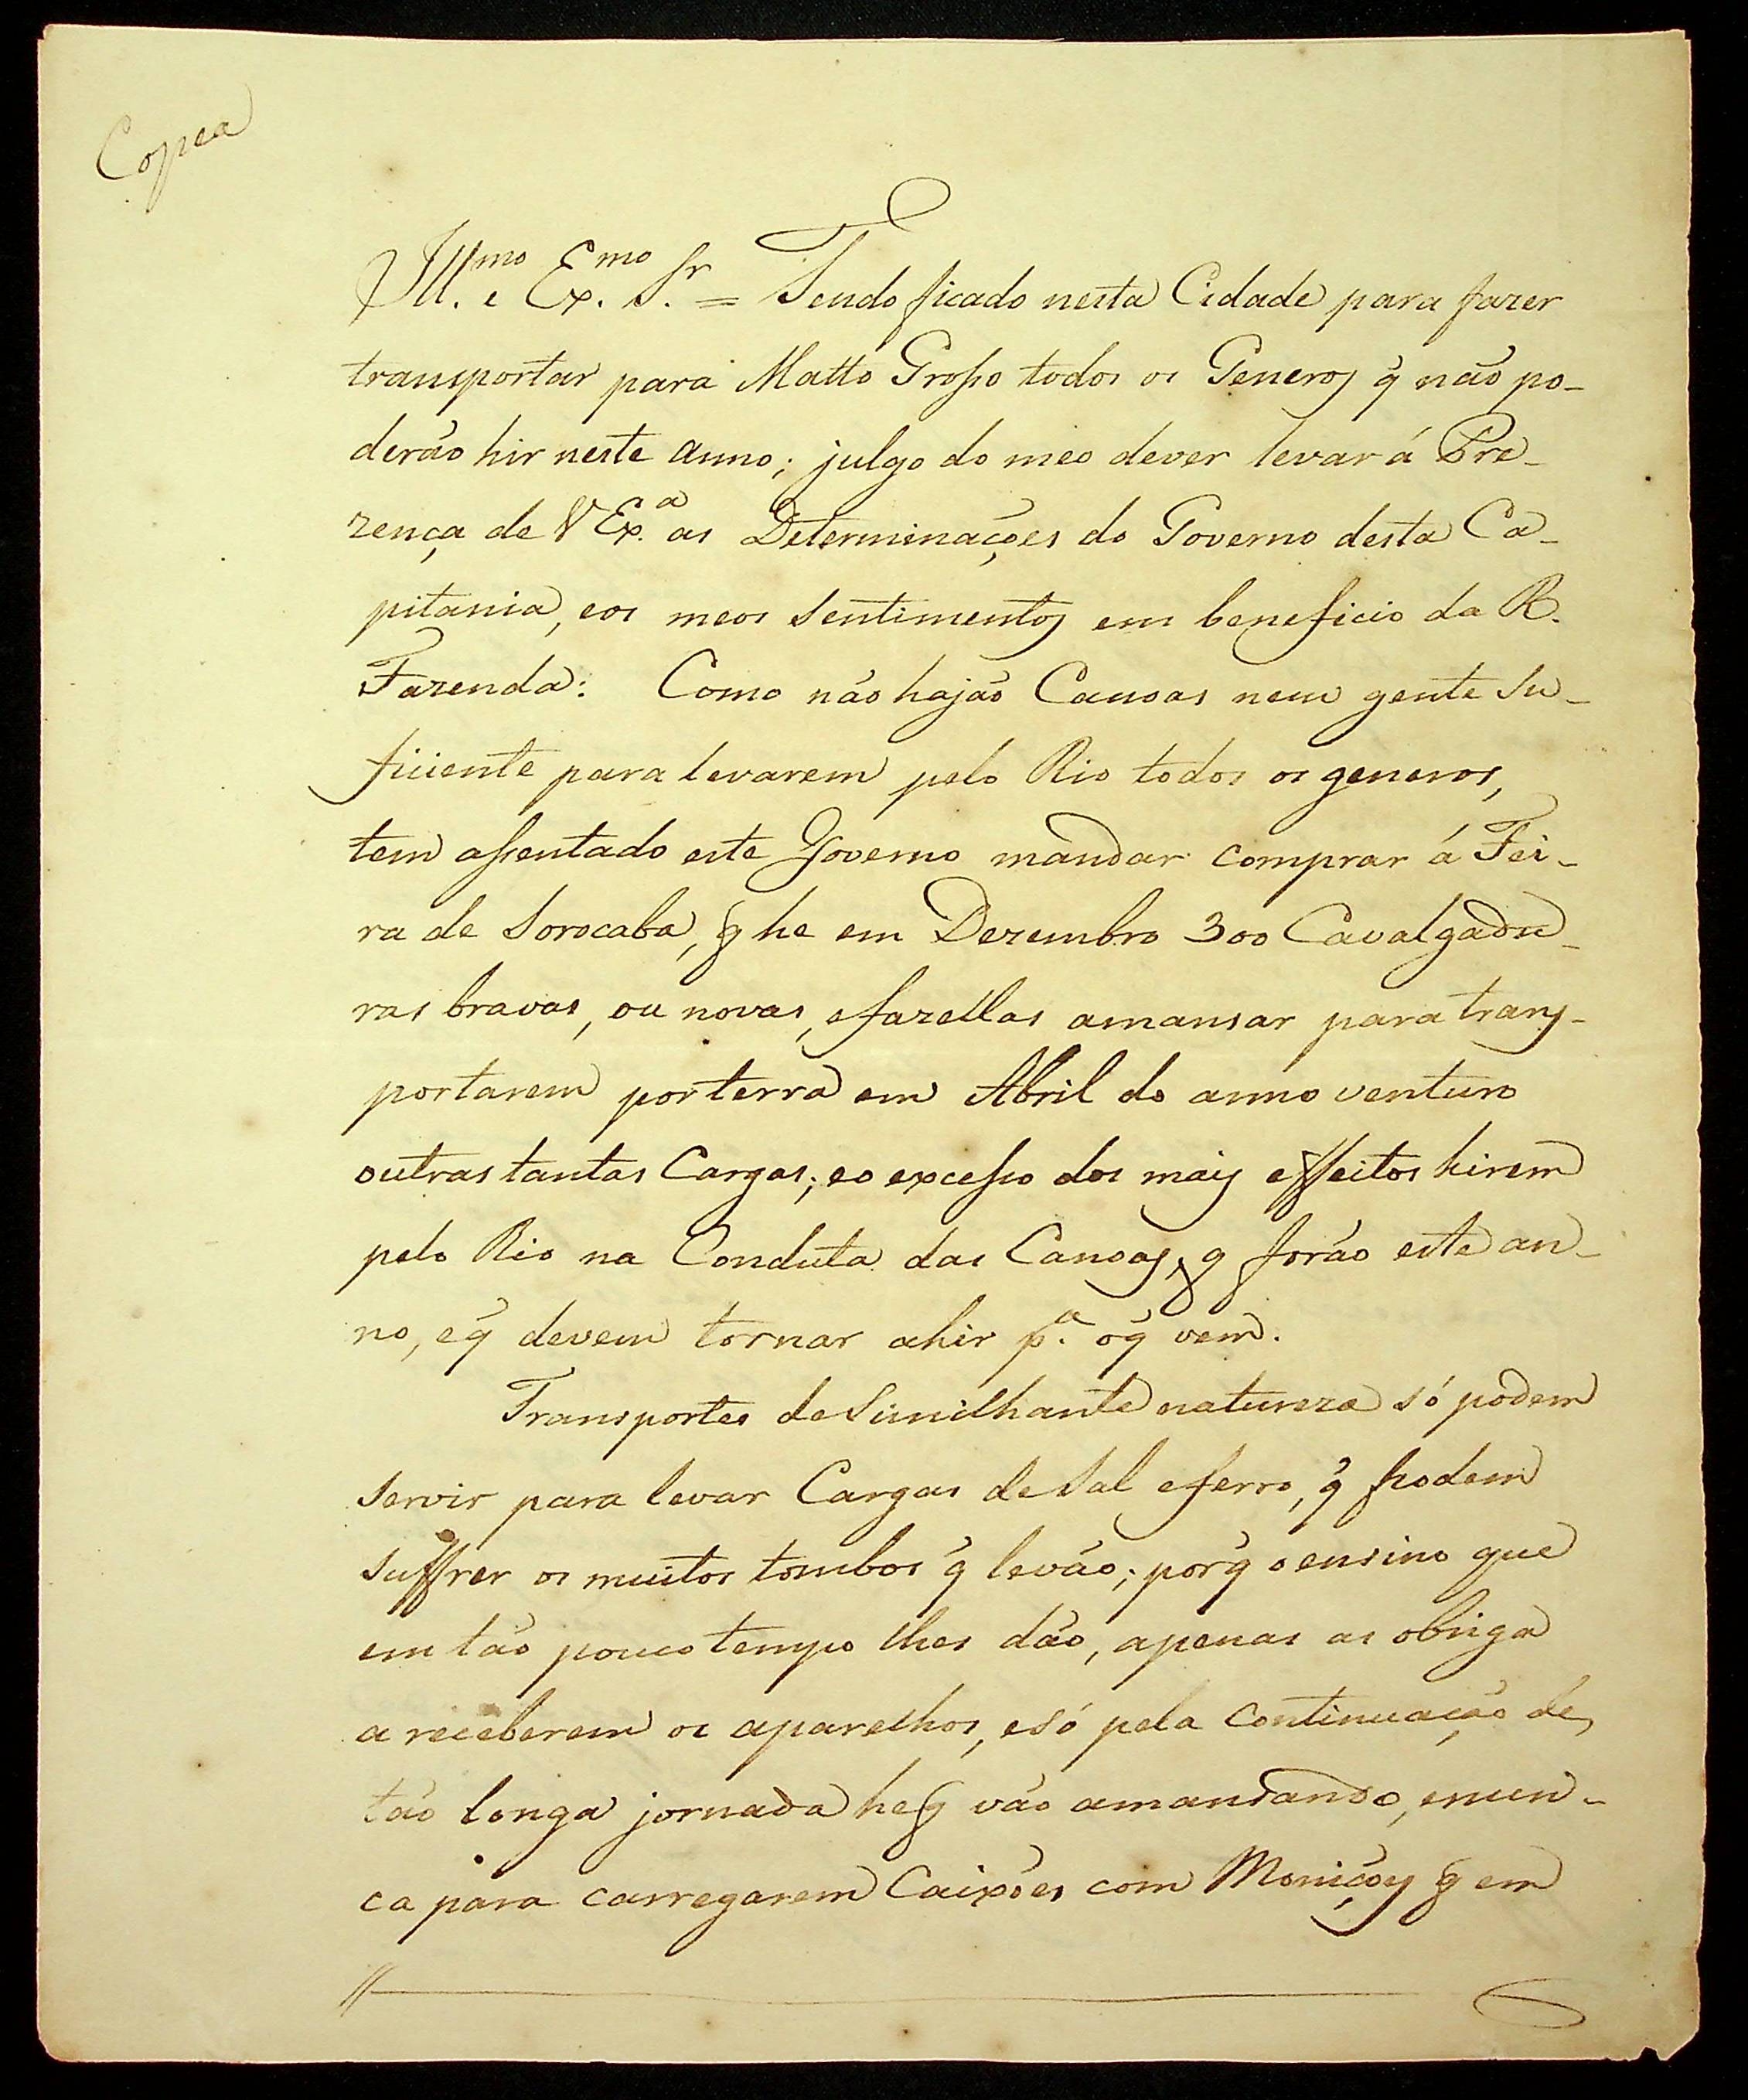 Copea
Ill.mo e Ex.mo Sr. = Tendo ficado nesta Cidade para fazer
transportar para Matto Grosso todos os Generos q̃ não po-
derão hir neste anno; julgo do meo dever levar á Pre-
zença de V Ex.a as Determinações do Governo desta Ca-
pitania, eos meos sentimentos em beneficio da R.
Fazenda: Como não hajão Canoas nem gente su-
ficiente para levarem pelo Rio todos os generos,
tem assentado este Governo mandar comprar á Fei-
ra de Sorocaba, q̃ he em Dezembro 300 Cavalgadu-
ras bravas, ou novas, efazellas amansar para trans-
portarem por terra em Abril do anno venturo
outras tantas Cargas; eo excesso dos mais effeitos hirem
pelo Rio na Conduta das Canoas, q̃ forão este an-
no, eq̃ devem tornar ahir p.a oq̃ vem.
Transportes de Similhante natureza só podem
servir para levar Cargas de Sal eferro, q̃ podem
suffrer os muitos tombos q̃ levão; porq̃ o ensino que
em tão pouco tempo lhes dão, apenas as obriga
a receberem os aparelhos, esó pela continuação de
tão longa jornada he q̃ vão amansando, enun-
ca para carregarem Caixões com Monições q̃ em